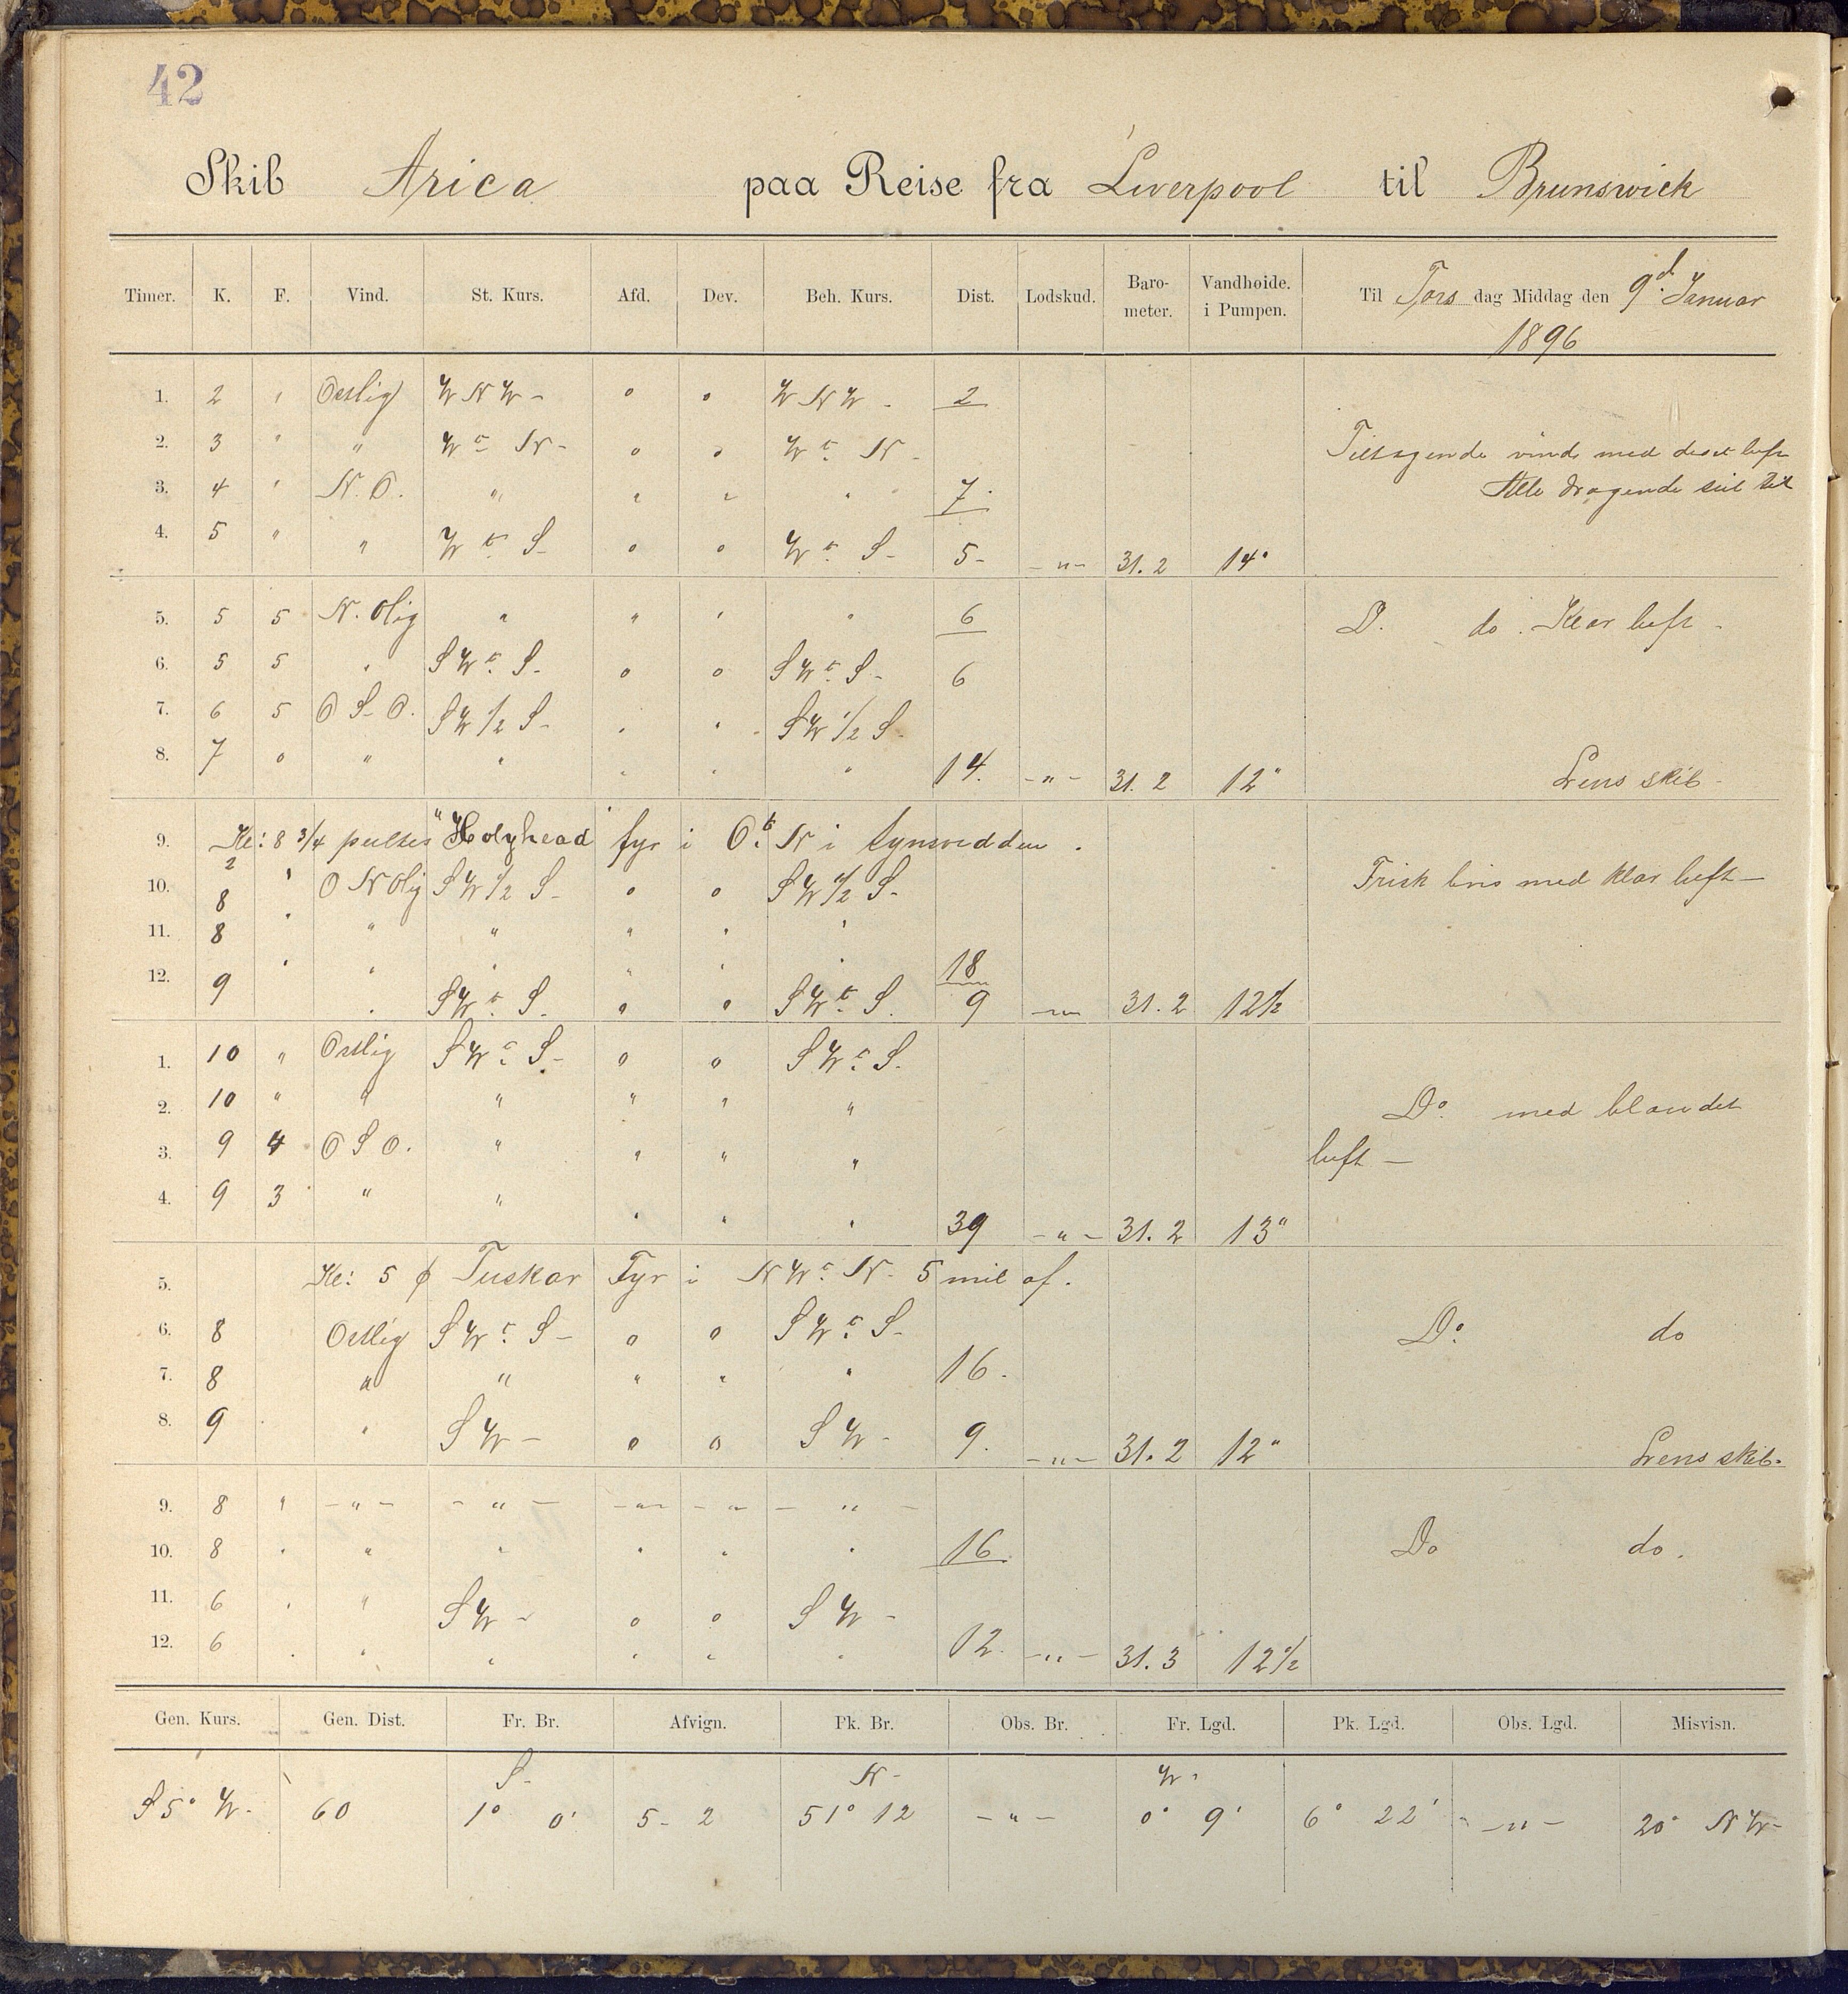 42
Skib Arica paa Reise fra Liverpool til Brunswick
Timer. K. F. Vind. St. Kurs. Afd. Dev. Beh. Kurs. Dist. Lodskud. Baro-meter. Vandhoide. i Pumpen. Til Tors dag Middag den 9d. Januar
1896
1. 2 " Ostlig W N W - o o W N W - 2
2. 3 " " W t. N - o o W t. N -
Tiltagende vind med diset luft
3. 4 " N. O. " " " " 7.
Alle dragende seil til
4. 5 " " W t. S - o o W t. S - 5 - - " - 31.2 14"
5. 5 5 N. Olig " " " " 6 D. do. Klar luft -
6. 5 5 " S W t. S - o o S W t. S - 6
7. 6 5 O S O. S W 1/2 S - " " S W 1/2 S -
8. 7 o " " " " " 14. - " - 31.2 12" Lens skib -
9. Kl: 8 3/4 peiltes "Holyhead" fyr i O t. N i Synsvidden.
2 "
10. 8 " O N Olig S W 1/2 S - o o S W 1/2 S - Frisk bris med klar luft -
11. 8 " " " " " "
12. 9 " " " " " 18
S W t. S. o o S W t. S. 9 - " - 31.2 12 1/2
1. 10 " Ostlig S W t. S - o o S W t. S.
2. 10 " " " " " " Do. med blandet
3. 9 4 O S O. " " " " luft -
4. 9 3 " " " " " 39 - " - 31.2 13"
5. Kl: 5 φ Tuskar Fyr i N W t. N. 5 mil af.
6. 8 Ostlig S W t. S - o o S W t. S - Do. do
7. 8 " " " " " 16.
8. 9 " S W - o o S W - 9. - " - 31.2 12" Lens skib.
9. 8 " - " - - " - - " - - " - - " -
10. 8 " " " " " " 16. Do do.
11. 6 " " S W - o o S W -
12. 6 " " " " " " 12. - " - 31.3 12 1/2
Gen. Kurs. Gen. Dist. Fr. Br. Afvign. Pk. Br. Obs. Br. Fr. Lgd. Pk. Lgd. Obs. Lgd. Misvisn.
S - N - W -
S 5° W. 60 1° 0' 5 - 2 51° 12 - " - 0° 9' 6° 22' - " - 20° N W -